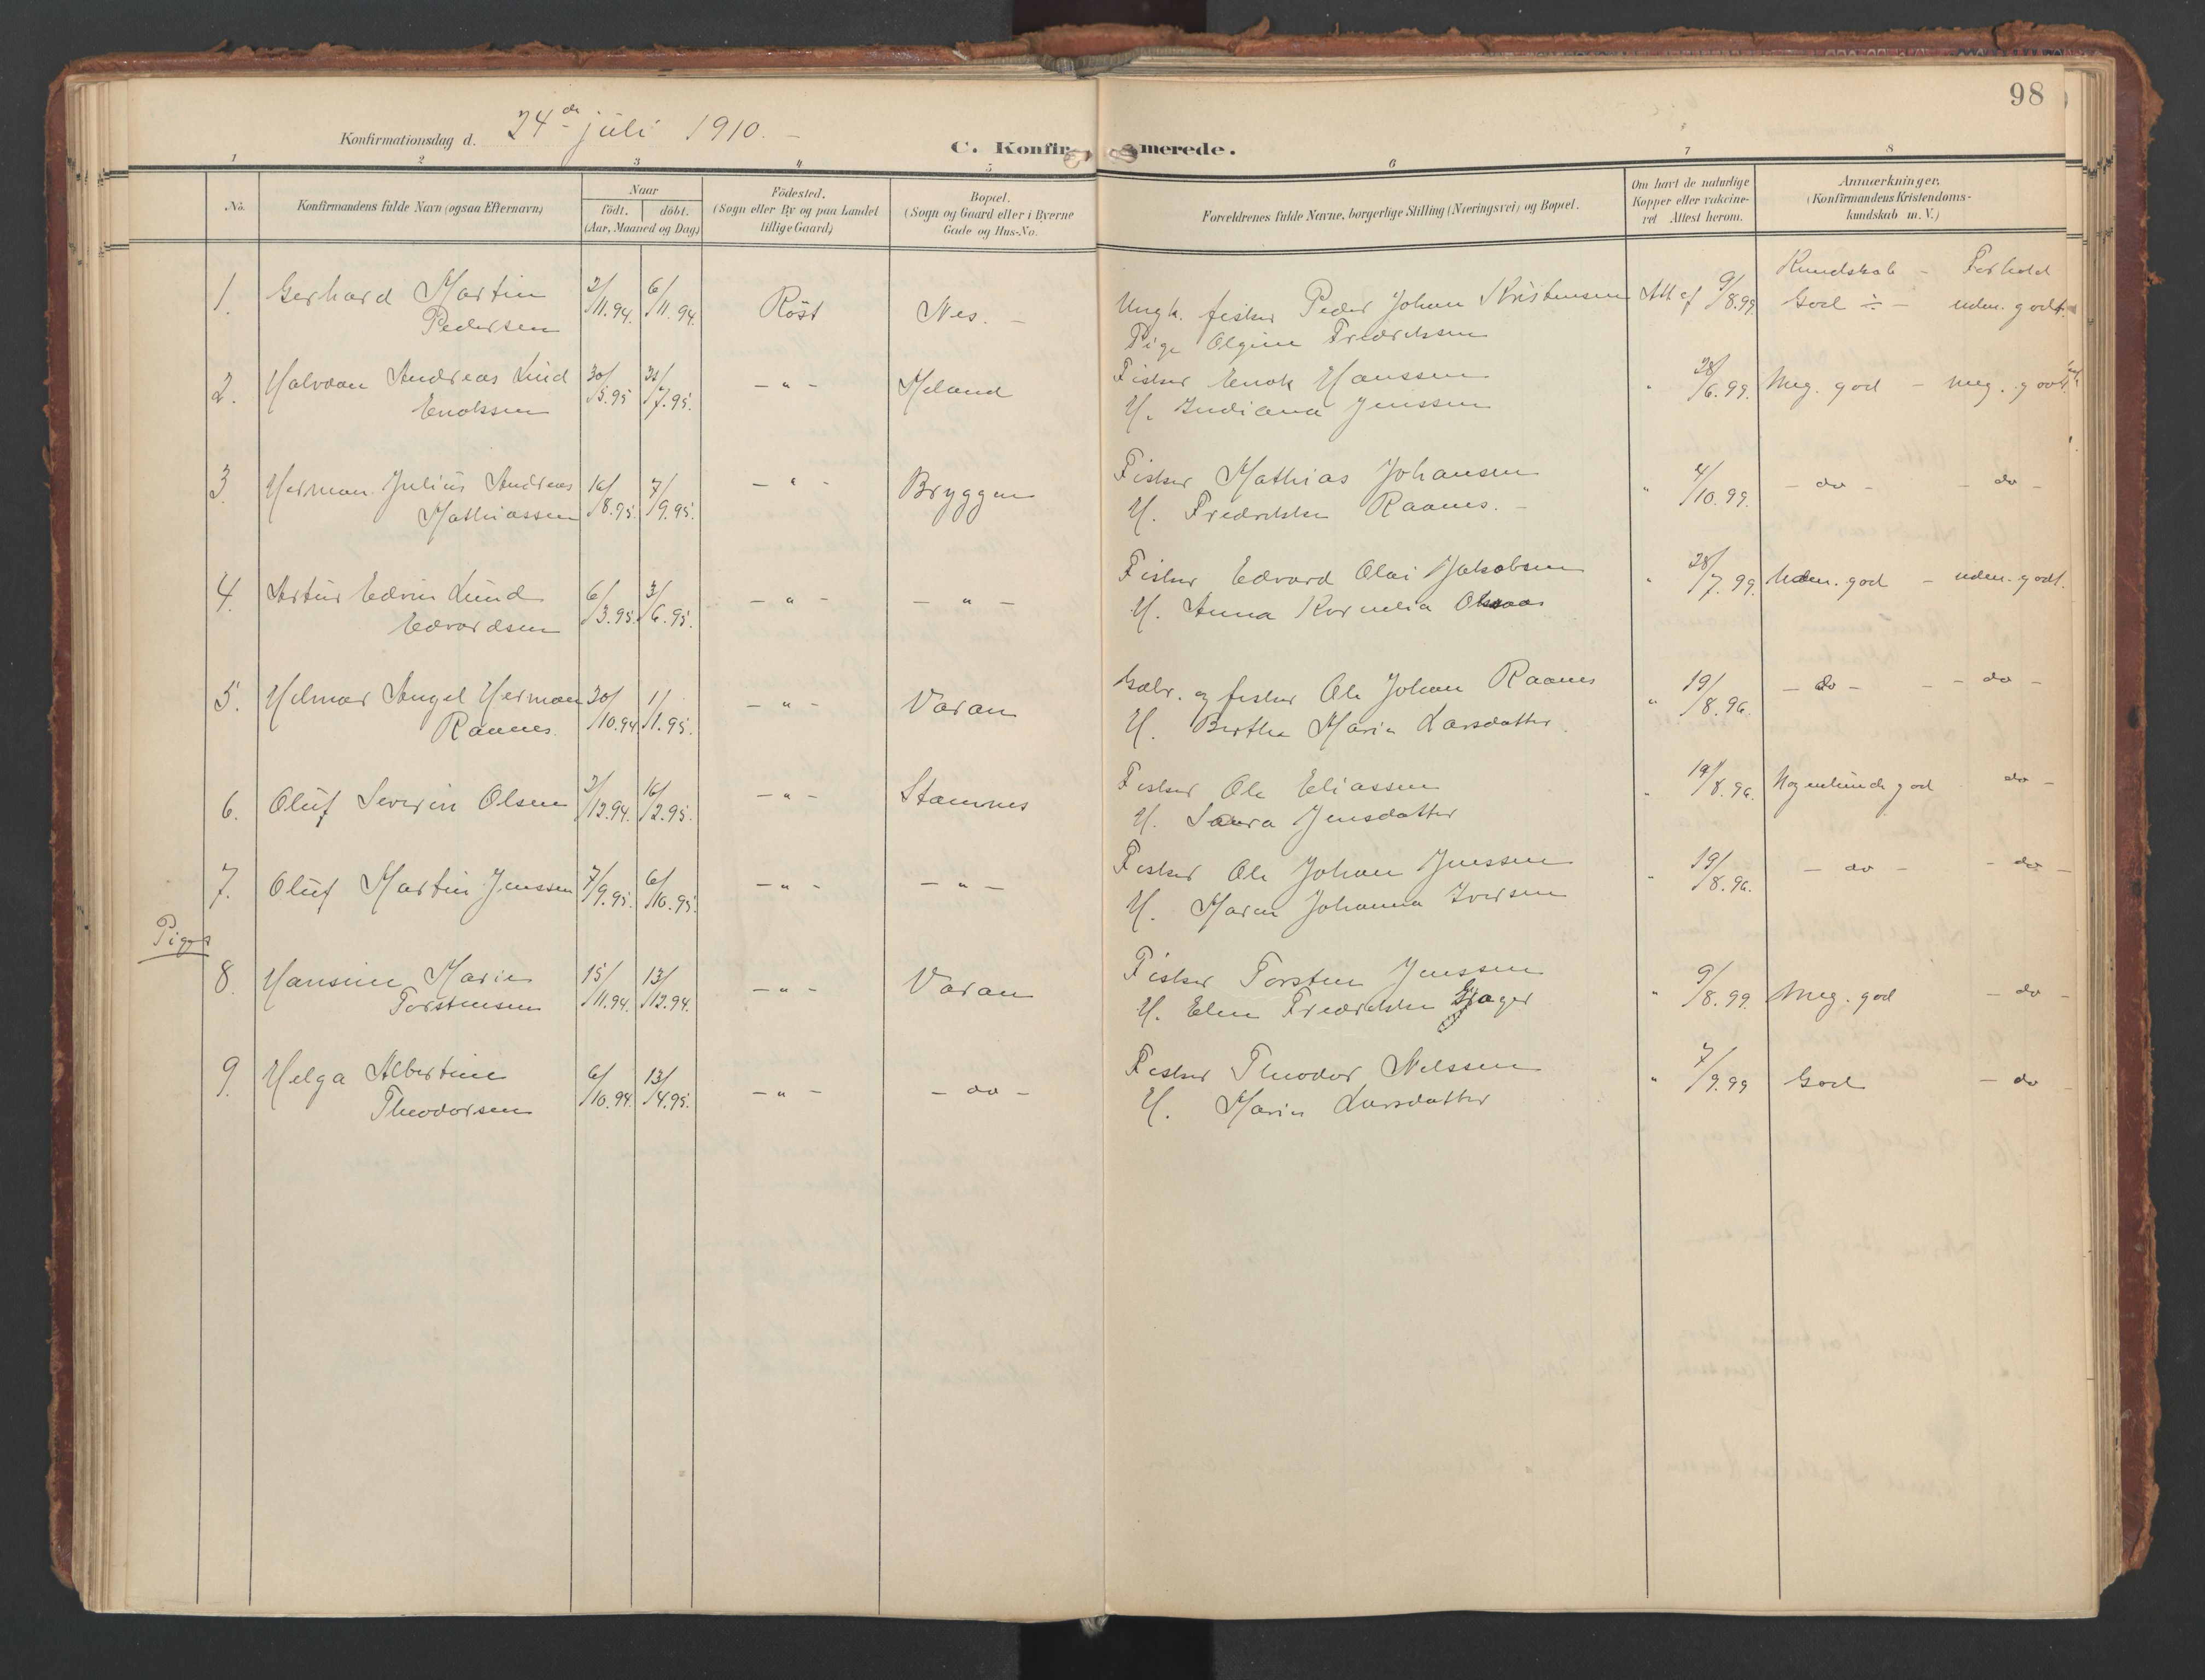 98
Konfirmationsdag d. 24de juli 1910.
C. Konfirmerede.
1 2 3 4 5 6 7 8
No.
Konfirmandens fulde Navn (ogsaa Efternavn)
Naar
födt. döbt.
(Aar, Maaned og Dag)
Födested.
(Sogn eller By og paa Landet
tillige Gaard)
Bopæl.
(Sogn og Gaard eller i Byerne
Gade og Hus-No.
Forældrenes fulde Navne, borgerlige Stilling (Næringsvei) og Bopæl.
Om havt de naturlige
Kopper eller vakcine-
ret Attest herom.
Anmærkninger,
(Konfirmandens Kristendoms-
kundskab m. V.)
Kundskab - Forhold
1. Gerhard Martin 2/11.94. 6/11.94. Röst Nes. - Ungk. fisker Peder Johan Kristensen Att af 9/8.99. God ÷ - uden. godt.
Pedersen Pige Olgine Fredriksen
2. Halvdan Andreas Lind 30/5.95 31/7.95. - " - Heland Fisker Enok Hanssen " 28/6.99. Meg. god - meg. godt.
Enokssen H. Indiana Jenssen
3. Herman Julius Andreas 16/8.95. 7/9.95. - " - Bryggen Fisker Mathias Johansen " 4/10.99. - do - - do -
Mathiassen H. Fredrikke Raanes. -
4. Artur Edvin Lund 6/3.95. 3/6.95. - " - - " - Fisker Edvard Olai Jakobsen " 28/7.99. Uden. god - uden. godt.
Edvardsen H. Anna Kornelia
5. Hilmar Angel Herman 30/10.94 1/1.95. - " - Varan Gabr. og fisker Ole Johan Raanes " 19/8.96. - do - - do -
Raanes. H. Berthe Maria Larsdatter.
6. Oluf Severin Olsen 2/12.94. 16/2.95. - " - Stavnes Fisker Ole Eliassen " 19/8.96. Nogenlunde god do -
H. Laura Jensdatter
7. Oluf Martin Jenssen 7/9.95. 6/10.95. - " - - " - Fisker Ole Johan Jenssen " 19/8.96. - do - - do -
H. Maren Johanna Iversen
Piger
8. Hansine Marie 15/11.94. 13/12.94. - " - Varan Fisker Torsten Jenssen " 9/8.99. Meg. god - do -
Torstensen H. Elen Fredrikke Grager
9. Helga Albertine 6/10.94. 13/4.95. - " - - do - Fisker Theodor Nilssen " 7/9.99 God - do
Theodorsen H. Marie Larsdatter